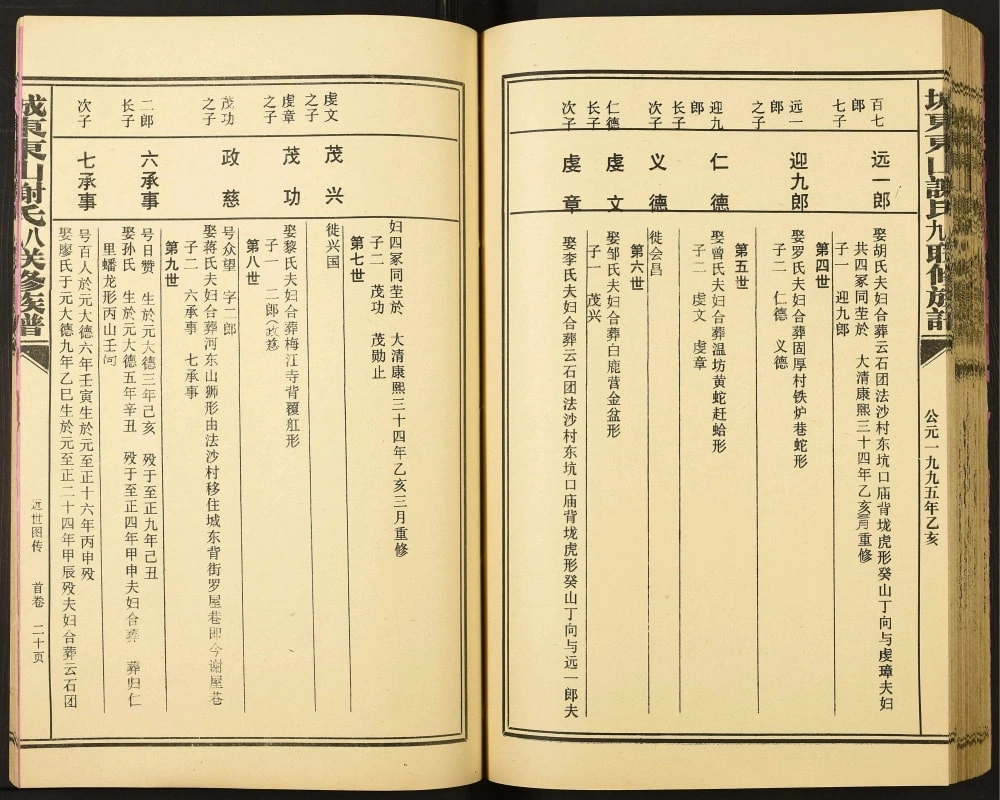 城東東山謝氏九联修族譜
公元一九九五年乙亥
百七
郎
七子
远一郎
娶胡氏夫妇合葬云石团法沙村东坑口庙背垅虎形癸山丁向与虔璋夫妇
共四冢同茔於 大清康熙三十四年乙亥三月重修
子一 迎九郎
第四世
远一
郎
之子
迎九郎
娶罗氏夫妇合葬固厚村铁炉巷蛇形
子二 仁德 义德
第五世
迎九
郎
长子
仁德
娶曾氏夫妇合葬温坊黄蛇赶蛤形
子二 虔文 虔章
次子
义德
徙会昌
第六世
仁德
长子
虔文
娶邹氏夫妇合葬白鹿营金盆形
子一 茂兴
次子
虔章
娶李氏夫妇合葬云石团法沙村东坑口庙背垅虎形癸山丁向与远一郎夫
妇四冢同茔於 大清康熙三十四年乙亥三月重修
子二 茂功 茂勋止
第七世
虔文
之子
茂兴
徙兴国
虔章
之子
茂功
娶黎氏夫妇合葬梅江寺背覆舡形
子一 二郎(政慈)
第八世
茂功
之子
政慈
号众望 字二郎
娶蒋氏夫妇合葬河东山狮形由法沙村移住城东背街罗屋巷即今谢屋巷
子二 六承事 七承事
第九世
二郎
长子
六承事
号日赞 生於元大德三年己亥 殁于至正九年己丑
娶孙氏 生於元大德五年辛丑 殁于至正四年甲申夫妇合葬 葬归仁
里蟠龙形丙山壬向
次子
七承事
号百人於元大德六年壬寅生於元至正十六年丙申殁
娶廖氏于元大德九年乙巳生於元至正二十四年甲辰殁夫妇合葬云石团
城東東山謝氏八联修族谱
远世图传 首卷 二十页